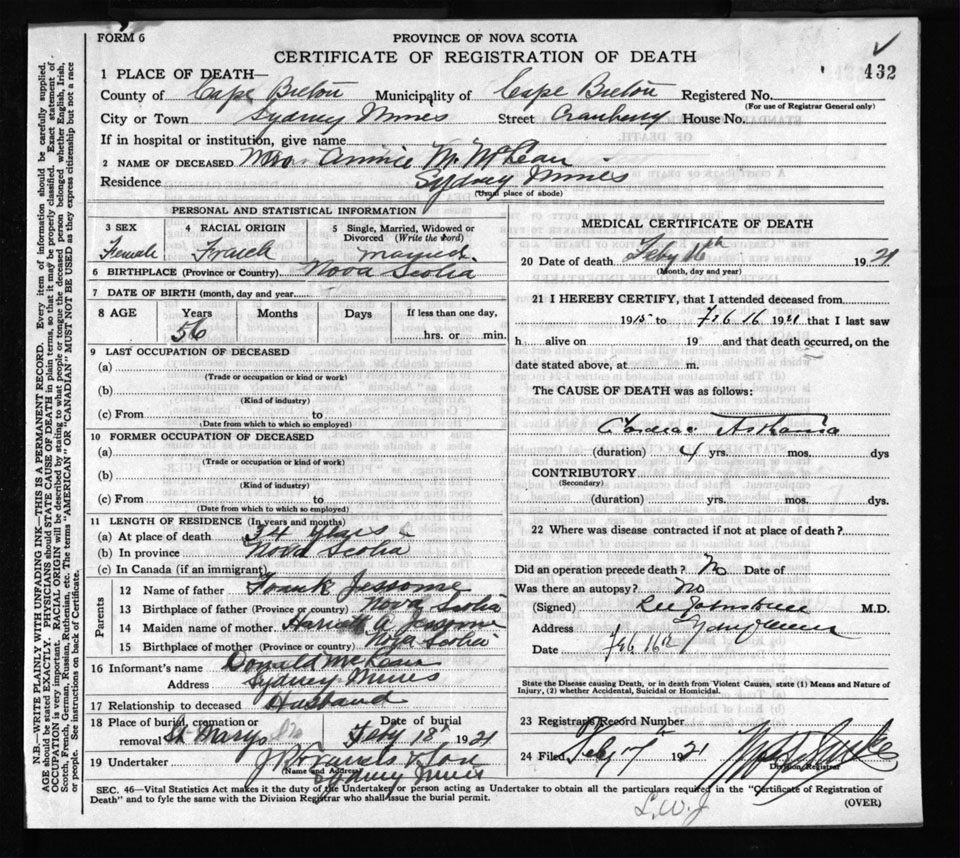 FORM 6
PROVINCE OF NOVA SCOTIA
CERTIFICATE OF REGISTRATION OF DEATH
432
1 PLACE OF DEATH—
County of Cape Breton Municipality of Cape Breton Registered No.
(For use of Registrar General only)
City or Town Sydney Mines Street Cranberry House No.
If in hospital or institution, give name
2 NAME OF DECEASED Mrs Annie M. McLean
Residence Sydney Mines
(Usual place of abode)
PERSONAL AND STATISTICAL INFORMATION
3 SEX Female
4 RACIAL ORIGIN French
5 Single, Married, Widowed or Divorced (Write the word) married
6 BIRTHPLACE (Province or Country) Nova Scotia
7 DATE OF BIRTH (month, day and year)
8 AGE Years 56 Months Days If less than one day, hrs. or min.
9 LAST OCCUPATION OF DECEASED
(a)
(Trade or occupation or kind of work)
(b)
(Kind of industry)
(c) From to
(Date from which to which so employed)
10 FORMER OCCUPATION OF DECEASED
(a)
(Trade or occupation or kind of work)
(b)
(Kind of industry)
(c) From to
(Date from which to which so employed)
11 LENGTH OF RESIDENCE (In years and months)
(a) At place of death 34 years
(b) In province Nova Scotia
(c) In Canada (if an immigrant)
Parents
12 Name of father Frank Jessome
13 Birthplace of father (Province or country) Nova Scotia
14 Maiden name of mother Harriett A Jessome
15 Birthplace of mother (Province or country) Nova Scotia
16 Informant's name Donald McLean
Address Sydney Mines
17 Relationship to deceased Husband
18 Place of burial, cremation or removal St Marys Date of burial Feby 18th 1921
19 Undertaker & Son
(Name and Address)
Sydney Mines
MEDICAL CERTIFICATE OF DEATH
20 Date of death Feby 16th 1921
(Month, day and year)
21 I HEREBY CERTIFY, that I attended deceased from
1915 to Feb 16 1921 that I last saw
h alive on 19 and that death occurred, on the
date stated above, at m.
The CAUSE OF DEATH was as follows:
Cardiac Asthma
(duration) 4 yrs. mos. dys
CONTRIBUTORY
(Secondary)
(duration) yrs. mos. dys.
22 Where was disease contracted if not at place of death?
Did an operation precede death? No Date of
Was there an autopsy? No
(Signed) M.D.
Address Sydney Mines
Date Feb 16th
State the Disease causing Death, or in death from Violent Causes, state (1) Means and Nature of Injury, (2) whether Accidental, Suicidal or Homicidal.
23 Registrar's Record Number
24 Filed Feby 17th 1921
Division Registrar
SEC. 46—Vital Statistics Act makes it the duty of the Undertaker or person acting as Undertaker to obtain all the particulars required in the "Certificate of Registration of
Death" and to fyle the same with the Division Registrar who shall issue the burial permit.
(OVER)
L.W.J
N.B.—WRITE PLAINLY WITH UNFADING INK—THIS IS A PERMANENT RECORD. Every item of information should be carefully supplied.
AGE should be stated EXACTLY. PHYSICIANS should STATE CAUSE OF DEATH in plain terms, so that it may be properly classified. Exact statement of
OCCUPATION is very important. RACIAL ORIGIN will be described by stating to what people or tongue the deceased person belonged whether English, Irish,
Scotch, French, German, Russian, Ruthenian, etc. The terms "AMERICAN" OR "CANADIAN" MUST NOT BE USED as they express citizenship but not a race
or people. See instructions on back of Certificate.